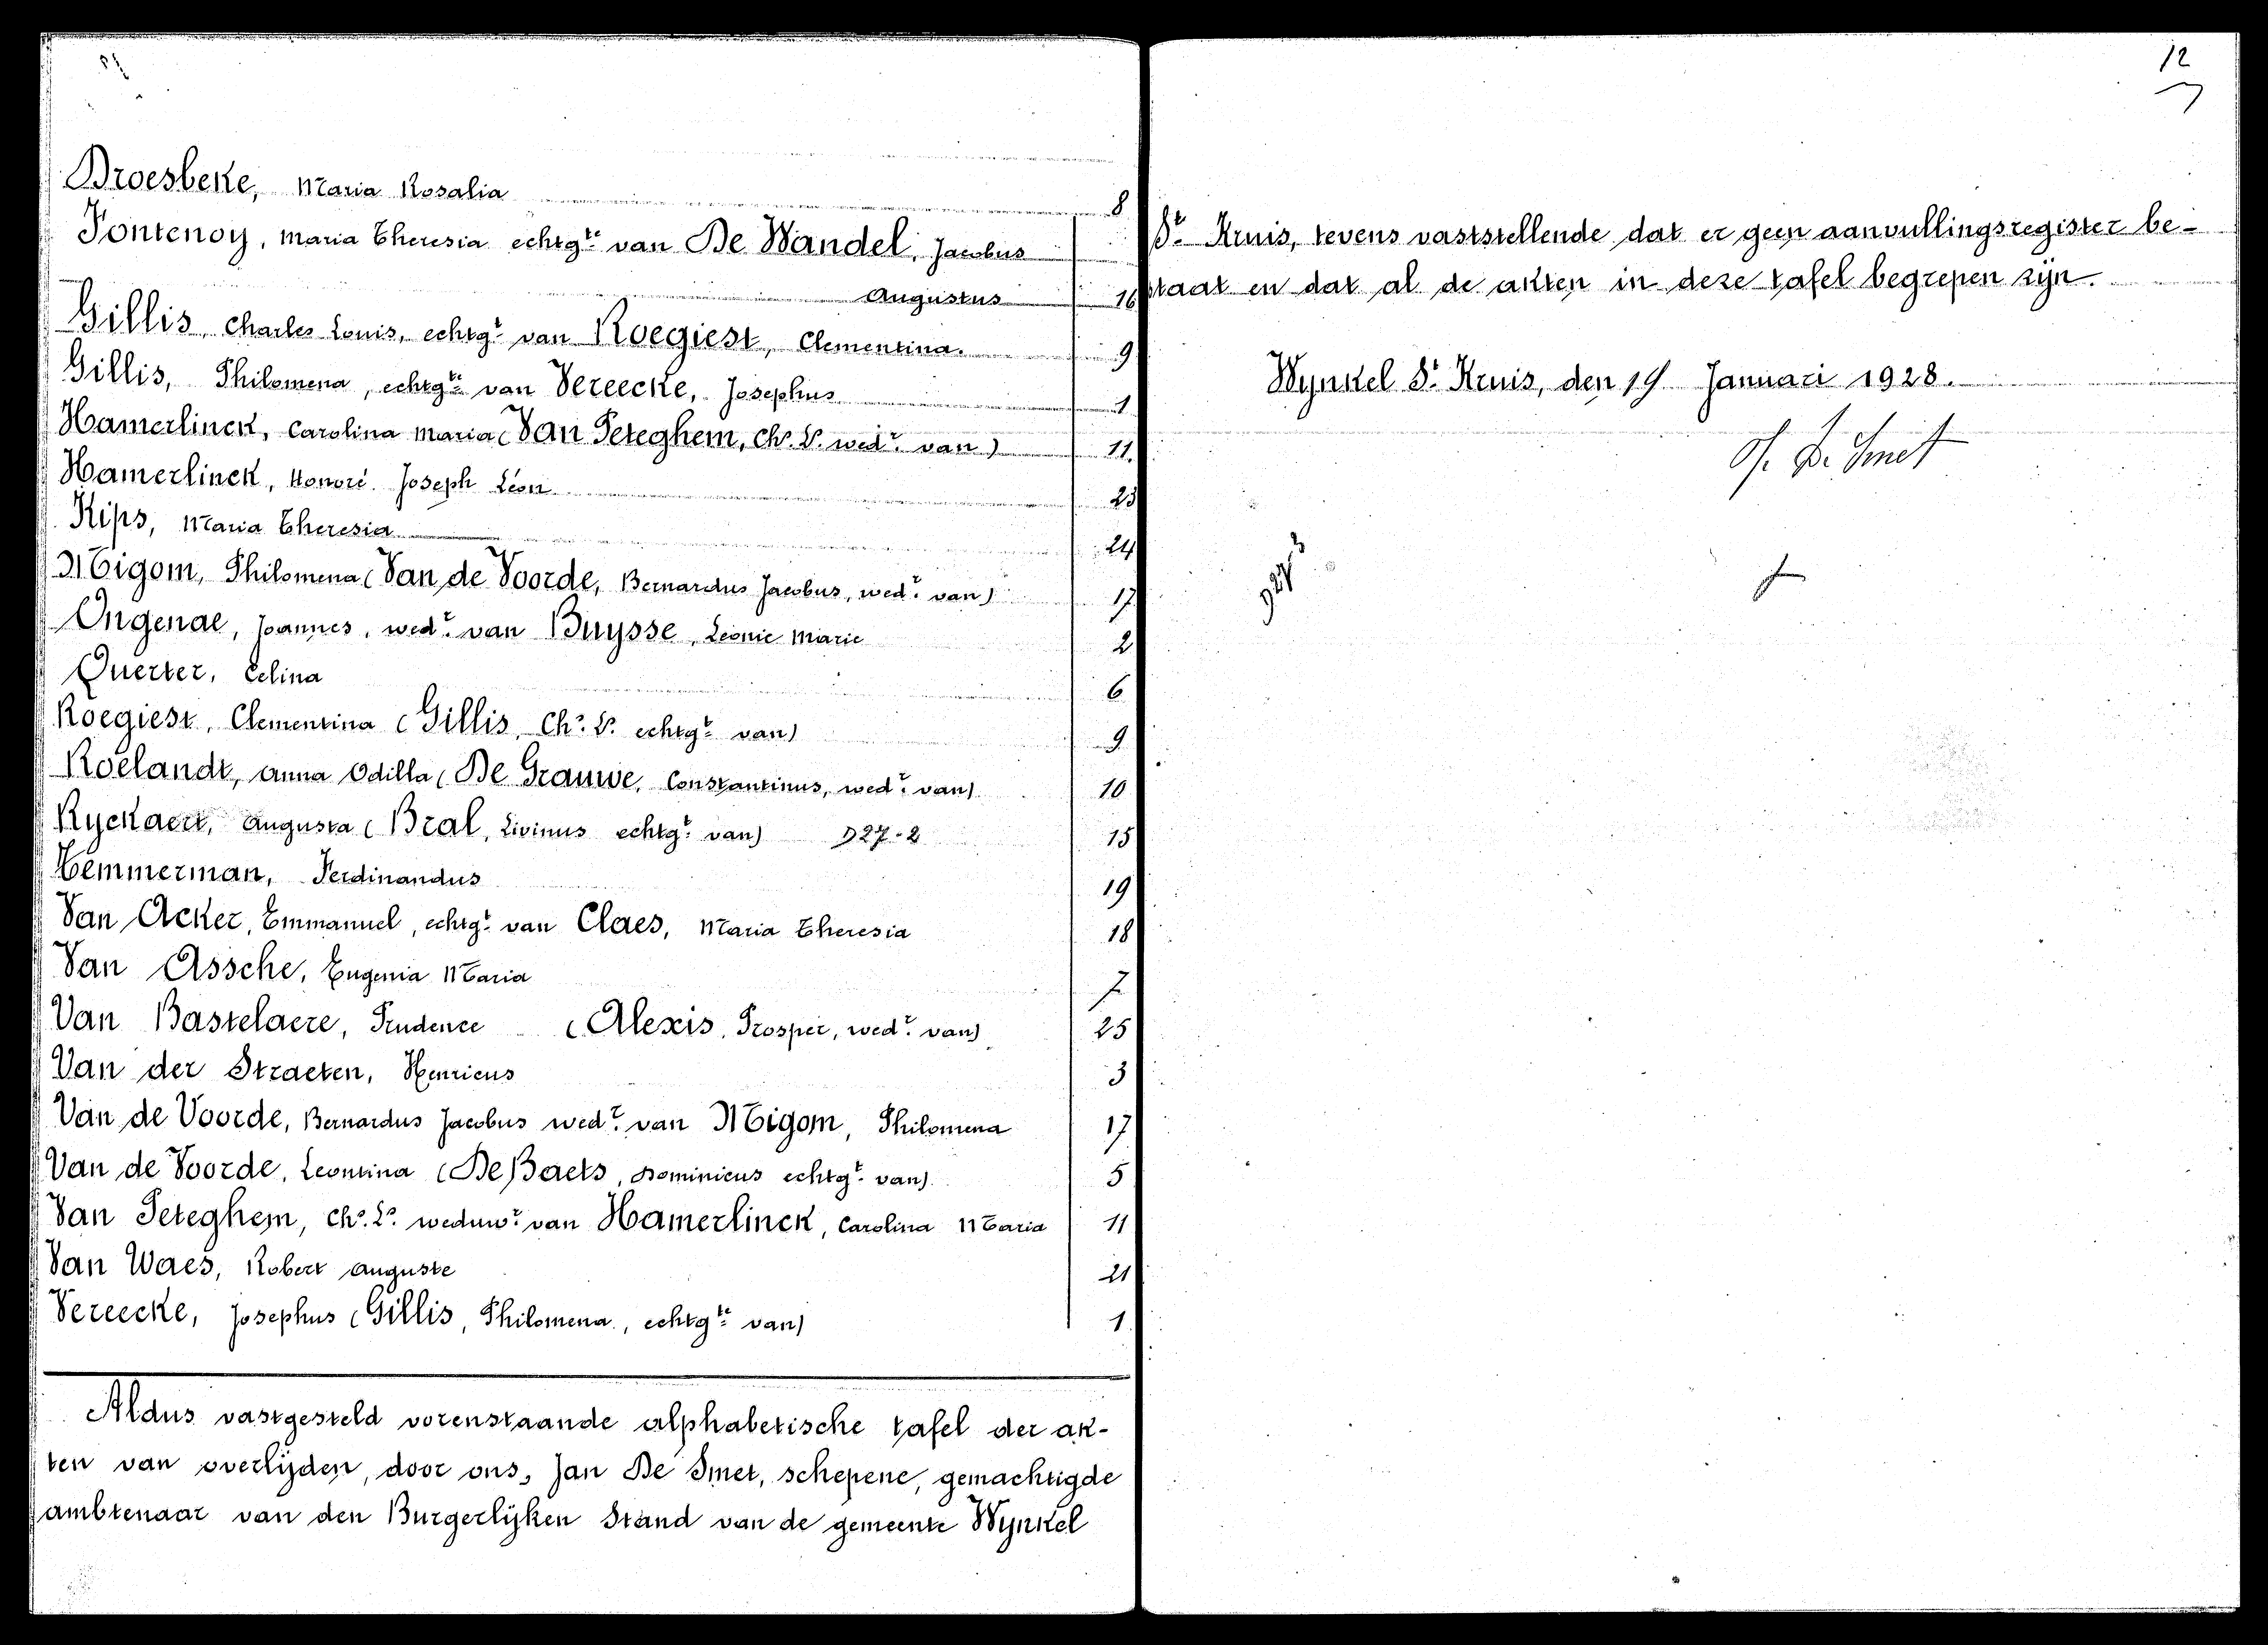 Droesbeke, Maria Rosalia 8
Fontenoy, Maria Theresia echtgte van De Wandel, Jacobus
Augustus 16
Gillis, Charles Louis, echtgt van Roegiest, Clementina. 9
Gillis, Philomena, echtgte van Vereecke, Josephus 1
Hamerlinck, Carolina Maria (Van Peteghem, Chs. Ls. wedr van) 11.
Hamerlinck, Honoré Joseph Léon 23
Kips, Maria Theresia 24
Migom, Philomena (Van de Voorde, Bernardus Jacobus, wedr van) 17
Ongenae, Joannes, wedr van Buysse, Leonie Marie 2
Querter, Celina 6
Roegiest, Clementina (Gillis, Chs. Ls. echtgt van) 9
Roelandt, Anna Odilla (De Grauwe, Constantinus, wedr van) 10
Ryckaert, Augusta (Bral, Livinus echtgt van) D27-2 15
Temmerman, Ferdinandus 19
Van Acker, Emmanuel, echtgt van Claes, Maria Theresia 18
Van Assche, Eugenia Maria 7
Van Bastelaere, Prudence (Alexis, Prosper, wedr van) 25
Van der Straeten, Henricus 3
Van de Voorde, Bernardus Jacobus wedr van Migom, Philomena 17
Van de Voorde, Leontina (De Baets, Dominicus echtgt van) 5
Van Peteghem, Chs. Ls. weduwr van Hamerlinck, Carolina Maria 11
Van Waes, Robert Auguste 21
Vereecke, Josephus (Gillis, Philomena, echtgte van) 1.
Aldus vastgesteld vorenstaande alphabetische tafel der ak-
ten van overlijden, door ons, Jan De Smet, schepene, gemachtigde
ambtenaar van den Burgerlijken Stand van de gemeente Wynkel
12
St Kruis, tevens vaststellende dat er geen aanvullingsregister be-
staat en dat al de akten in deze tafel begrepen zijn.
Wynkel St Kruis, den 19 Januari 1928.
J. De Smet